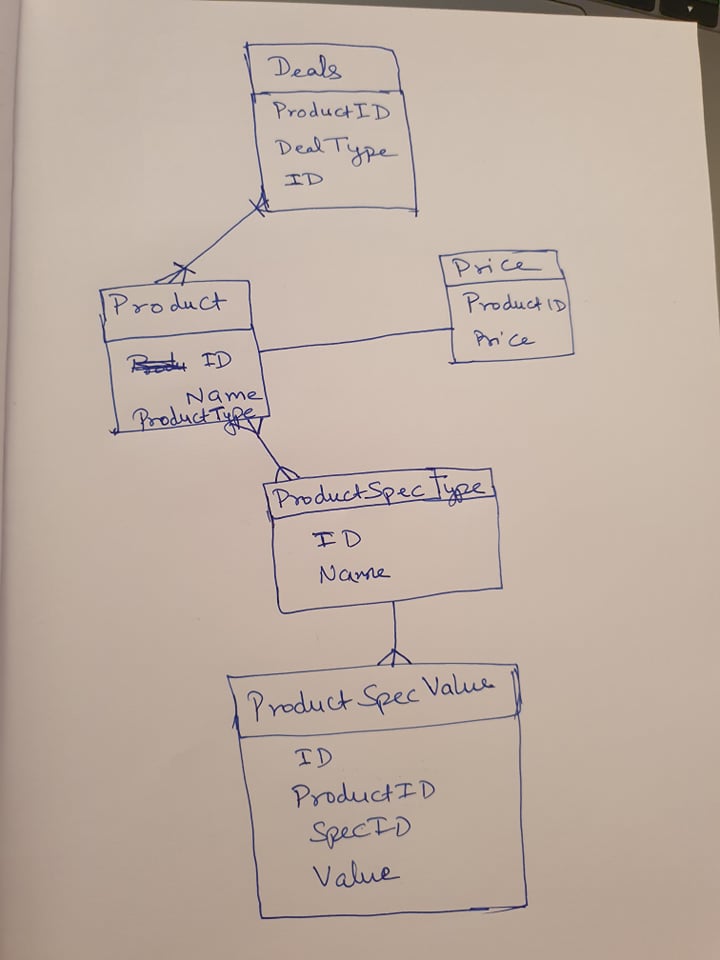 Deals
ProductID
DealType
ID
Price
ProductID
Price
Product
ID
Name
ProductType
ProductSpecType
ID
Name
ProductSpecValue
ID
ProductID
SpecID
Value